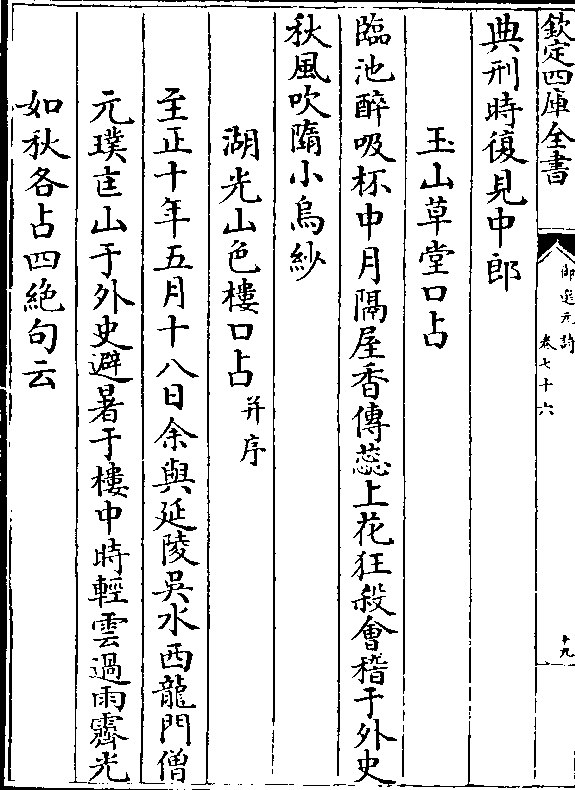 欽定四庫全書
御選元詩
卷七十六
十九
典刑時復見中郎
玉山草堂口占
臨池醉吸杯中月隔屋香傳蕊上花狂殺會稽于外史
秋風吹隋小烏紗
湖光山色樓口占并序
至正十年五月十八日余與延陵吳水西龍門僧
元璞匡山于外史避暑于樓中時輕雲過雨霽光
如秋各占四絶句云